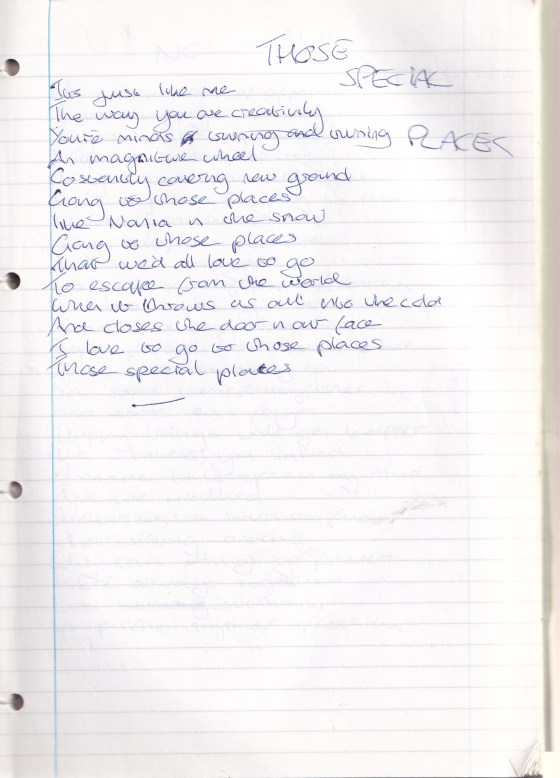 THOSE
SPECIAL
PLACES
Its just like me
The way you are creativity
Youre minds turning and turning
An magnitive wheel
Constantly covering new ground
Going to those places
like Narnia in the snow
Going to those places
That we'd all love to go
To escape from the world
When it throws us out into the cold
And closes the door in our face
I'd love to go to those places
Those special places